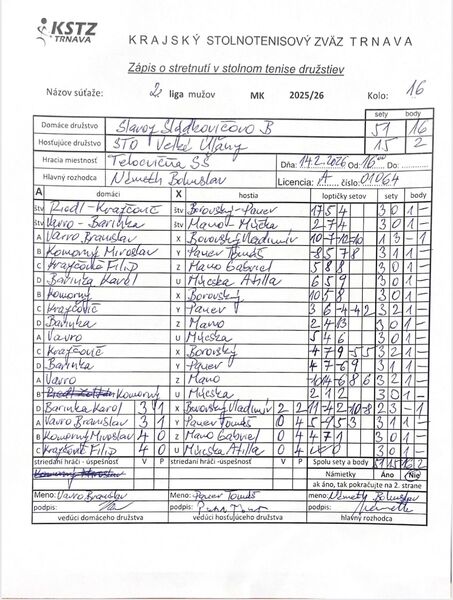 KSTZ
TRNAVA
KRAJSKÝ STOLNOTENISOVÝ ZVÄZ TRNAVA
Zápis o stretnutí v stolnom tenise družstiev
Názov súťaže: 2 liga mužov MK 2025/26 Kolo: 16
sety body
Domáce družstvo Slavoj Sládkovičovo B 51 16
Hosťujúce družstvo STO Veľké Úľany 15 2
Hracia miestnosť Telocvičňa SŠ Dňa: 14.2.2026 Od 16:00 Do:
Hlavný rozhodca Németh Bohuslav Licencia: A číslo: 01064
A domáci X hostia loptičky setov sety body
štv Riedl - Krajčovič štv Borovský - Paver 17 5 4 3 0 1 -
štv Vavro - Barinka štv Mano - Mucska 2 7 4 3 0 1 -
A Vavro Branislav X Borovský Vladimír 10 -7 -12 -10 1 3 - 1
B Komorný Miroslav Y Paver Tomáš -8 5 7 8 3 1 1 -
C Krajčovič Filip Z Mano Gabriel 5 8 8 3 0 1 -
D Barinka Karol U Mucska Atilla 6 5 9 3 0 1 -
B Komorný X Borovský 10 5 8 3 0 1 -
C Krajčovič Y Paver 3 6 -4 -4 2 3 2 1 -
D Barinka Z Mano 2 4 13 3 0 1 -
A Vavro U Mucska 5 4 6 3 0 1 -
C Krajčovič X Borovský 4 7 9 -5 5 3 2 1 -
D Barinka Y Paver 4 7 -6 9 3 1 1 -
A Vavro Z Mano -10 14 -6 8 6 3 2 1 -
B Komorný U Mucska 2 1 2 3 0 1 -
D Barinka Karol 3 1 X Borovský Vladimír 2 2 11 -4 2 -10 -8 2 3 - 1
A Vavro Branislav 3 1 Y Paver Tomáš 0 4 5 -9 5 3 3 1 1 -
B Komorný Miroslav 4 0 Z Mano Gabriel 0 4 4 7 1 3 0 1 -
C Krajčovič Filip 4 0 U Mucska Atilla 0 4 3 0 1 -
striedaní hráči - úspešnosť V P striedaní hráči - úspešnosť V P Spolu sety a body 51 15 16 2
Námietky Áno Nie
ak áno, tak pokračujte na 2. strane
Meno: Vavro Branislav Meno: Paver Tomáš meno: Németh Bohuslav
podpis: podpis: podpis:
vedúci domáceho družstva vedúci hosťujúceho družstva hlavný rozhodca